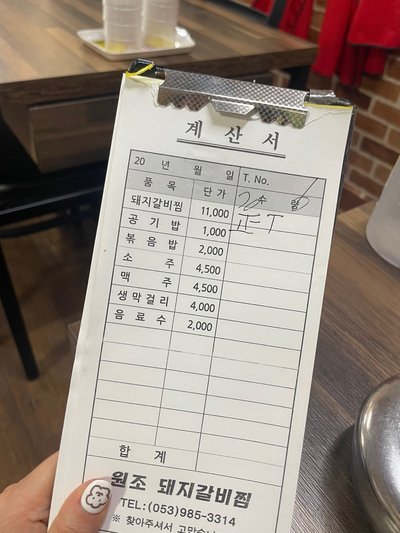 계산서
20 년 월 일 T. No.
품목 단가 수량
돼지갈비찜 11,000 正T
공기밥 1,000
볶음밥 2,000
소주 4,500
맥주 4,500
생막걸리 4,000
음료수 2,000
합계
원조 돼지갈비찜
TEL:(053)985-3314
※ 찾아주셔서 고맙습니